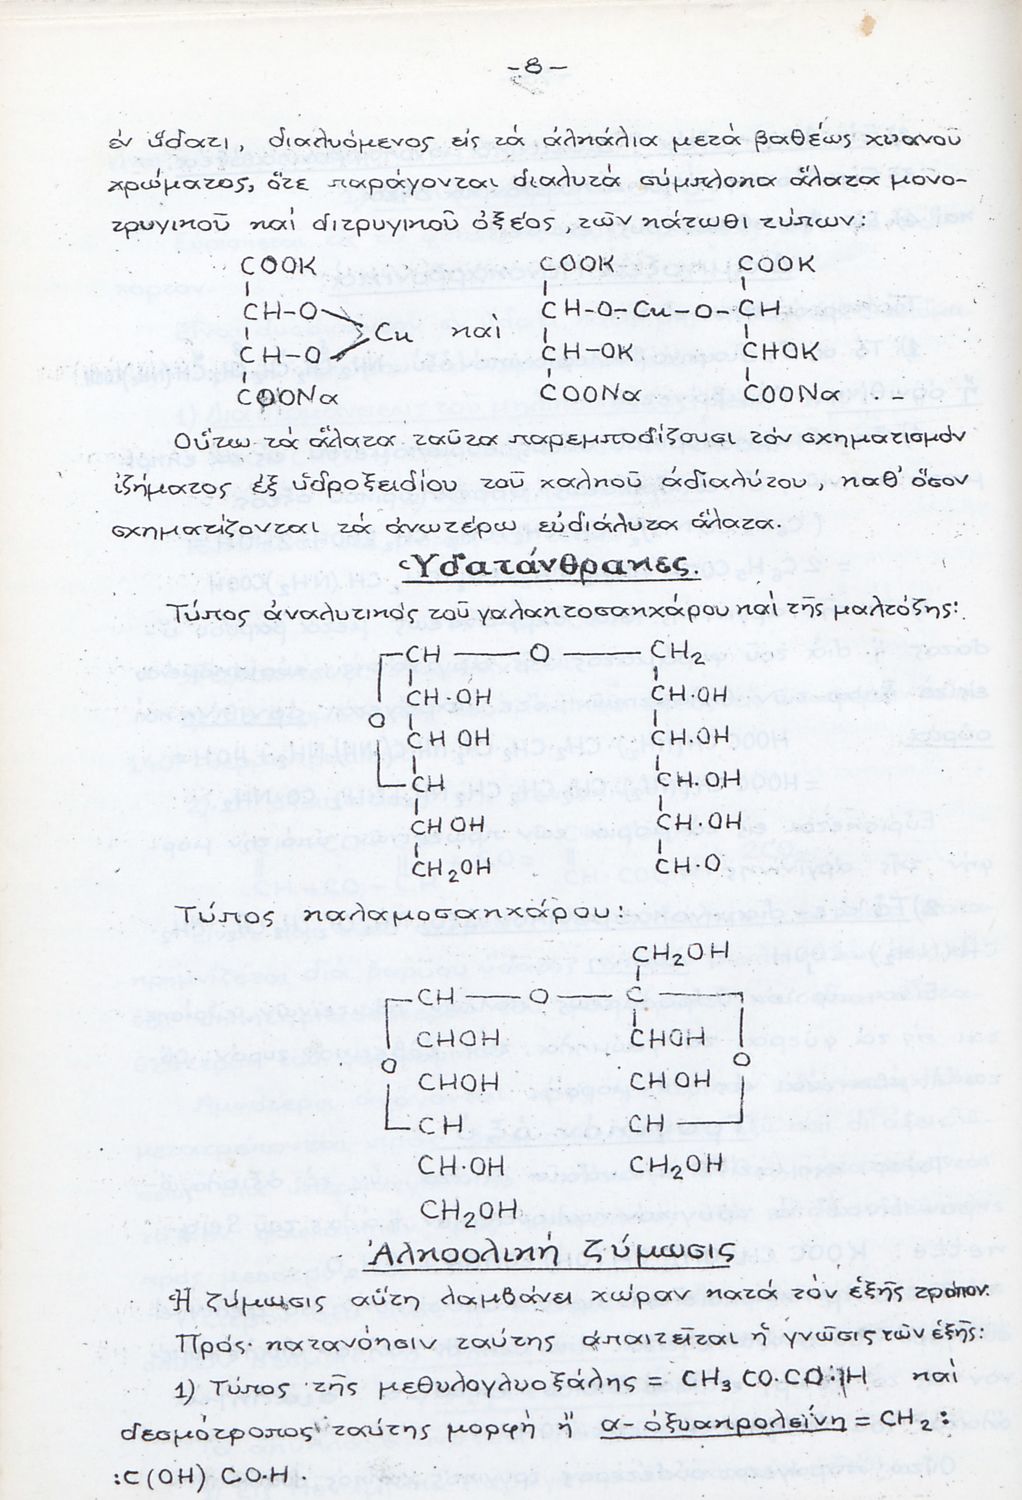 -8-
ἐν ὕδατι, διαλυόμενος εἰς τὰ ἀλκάλια μετὰ βαθέως κυανοῦ
χρώματος, ὅτε παράγονται διαλυτὰ σύμπλοκα ἅλατα μονο-
τρυγικοῦ καὶ διτρυγικοῦ ὀξέος, τῶν κάτωθι τύπων:
COOK COOK COOK
CH-O CH-O-Cu-O-CH
Cu καὶ
CH-O CH-OK CHOK
COONa COONa COONa
Οὕτω τὰ ἅλατα ταῦτα παρεμποδίζουσι τὸν σχηματισμὸν
ἱζήματος ἐξ ὑδροξειδίου τοῦ χαλκοῦ ἀδιαλύτου, καθ' ὅσον
σχηματίζονται τὰ ἀνωτέρω εὐδιάλυτα ἅλατα.
Ὑδατάνθρακες.
Τύπος ἀναλυτικὸς τοῦ γαλακτοσακχάρου καὶ τῆς μαλτόζης:
CH — O — CH₂
CH·OH CH·OH
O
CH OH CH·OH
CH CH·OH
CH OH CH·OH
CH₂OH CH·O
Τύπος καλαμοσακχάρου:
CH₂OH
CH — O — C
CHOH CHOH
O O
CHOH CHOH
CH CH
CH·OH CH₂OH
CH₂OH
Ἀλκοολικὴ ζύμωσις
Ἡ ζύμωσις αὕτη λαμβάνει χώραν κατὰ τὸν ἑξῆς τρόπον.
Πρὸς κατανόησιν ταύτης ἀπαιτεῖται ἡ γνῶσις τῶν ἑξῆς:
1) Τύπος τῆς μεθυλογλυοξάλης = CH₃ CO·CO·H καὶ
δεσμότροπος ταύτης μορφὴ ἡ α-ὀξυακρολεΐνη = CH₂:
:C(OH) CO·H.